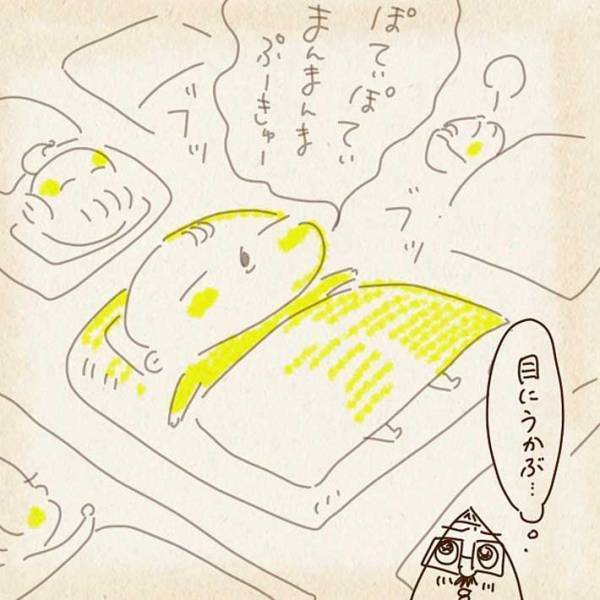 ぽてぃぽてぃ
まんまんま
ぷーきゅー
ブツ
ブツ
目にうかぶ…